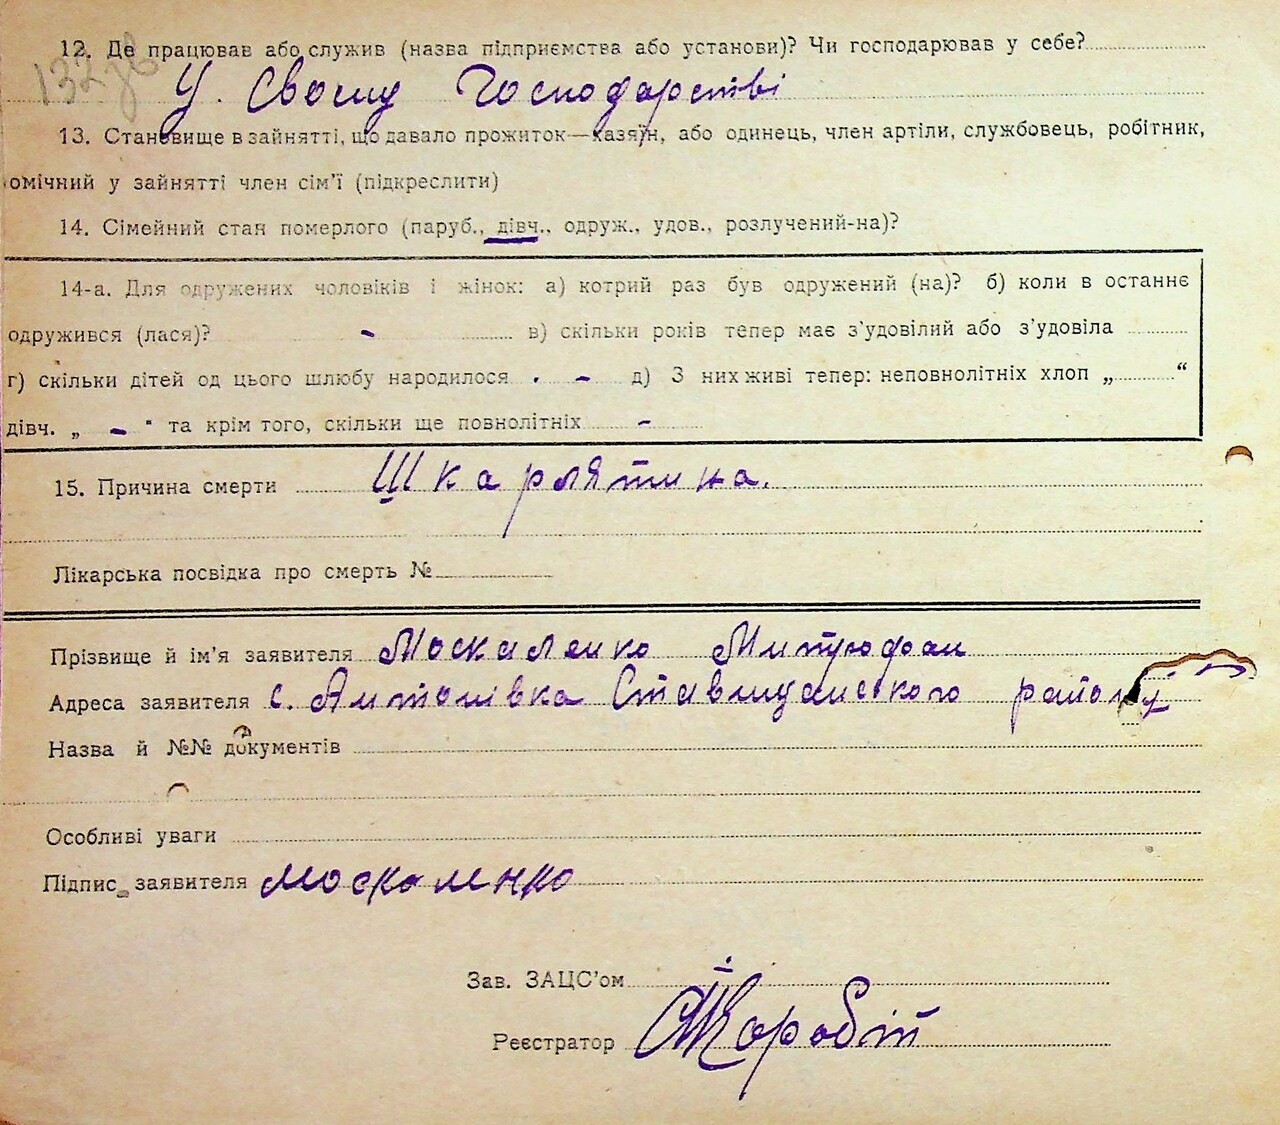 12. Де працював або служив (назва підприємства або установи)? Чи господарював у себе?
132 зв
У. Своему Господарстві
13. Становище в зайнятті, що давало прожиток—хазяїн, або одинець, член артіли, службовець, робітник,
омічний у зайнятті член сім'ї (підкреслити)
14. Сімейний стан померлого (паруб., дівч., одруж., удов., розлучений-на)?
14-а. Для одружених чоловіків і жінок: а) котрий раз був одружений (на)? б) коли в останнє
одружився (лася)? - в) скільки років тепер має з'удовілий або з'удовіла
г) скільки дітей од цього шлюбу народилося - д) З них живі тепер: неповнолітніх хлоп „ “
дівч. „ - " та крім того, скільки ще повнолітніх -
15. Причина смерти Шкарлятина.
Лікарська посвідка про смерть №
Прізвище й ім'я заявителя Москаленко Митрофан
Адреса заявителя с. Антонівка Ставищанського району
Назва й №№ документів
Особливі уваги
Підпис заявителя Москаленко
Зав. ЗАЦС'ом
Реєстратор Коробій